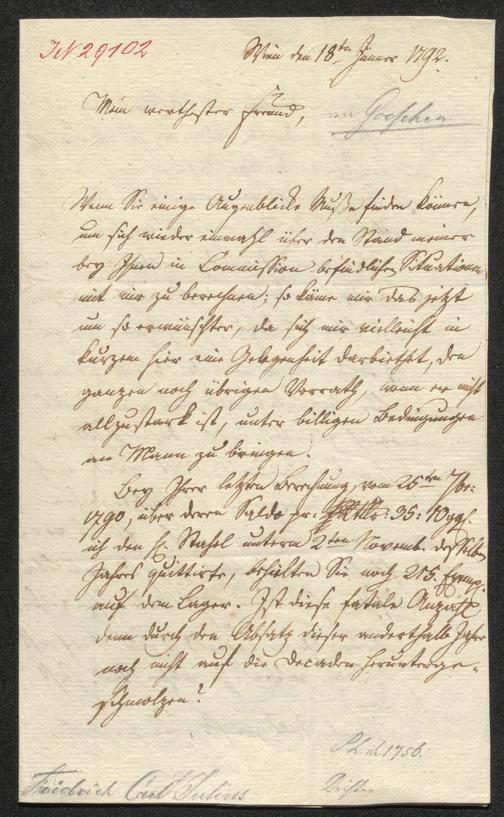 IN 29102
Wien den 18ten Jänner 1792.
Mein werthester Freund,
an Goeschen
Wenn Sie einige Augenblicke Muße finden können,
um sich wieder einmahl über den Stand meiner
bey Ihnen in Commission befindlichen Situationen
mit mir zu berechnen; so käme mir das jetzt
um so erwünschter, da sich mir vielleicht in
kurzem hier eine Gelegenheit darbiethet, den
ganzen noch übrigen Vorrath, wenn er nicht
allzustark ist, unter billigen Bedingungen
an Mann zu bringen.
Bey Ihrer letzten Berechnung vom 25ten 7br:
1790, über deren Saldo pr: 35: 10 ggl.
ich den H. Stahel unterm 2ten Novemb. desselben
Jahres quittirte, behielten Sie noch 215. Exempl.
auf dem Lager. Ist diese fatale Anzahl
denn durch den Absatz dieser anderthalb Jahre
noch nicht auf die Decaden herunterge-
schmolzen?
1756.
Friedrich Carl Julius